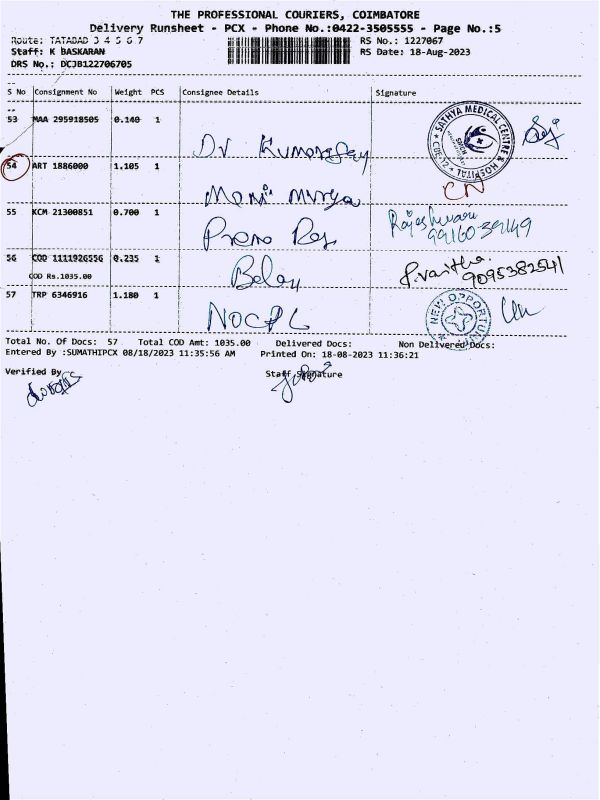 THE PROFESSIONAL COURIERS, COIMBATORE
Delivery Runsheet - PCX - Phone No.:0422-3505555 - Page No.:5
Route: TATABAD 3 4 5 6 7
RS No.: 1227067
Staff: K BASKARAN
RS Date: 18-Aug-2023
DRS No.: DCJB122706705
S No Consignment No Weight PCS Consignee Details Signature
53 MAA 295918505 0.140 1
SATHYA MEDICAL CENTRE & HOSPITAL
Dr Kumarasamy
54 ART 1886000 1.105 1
CN
Mani Murya
55 KCM 21300851 0.700 1 Rajeshwari
Prema Raj 9916039149
56 COD 1111926556 0.235 1 P. Vanitha
COD Rs.1035.00 9095382541
57 TRP 6346916 1.180 1
NEW OPPORTUN
NOCPL
Total No. Of Docs: 57 Total COD Amt: 1035.00 Delivered Docs: Non Delivered Docs:
Entered By :SUMATHIPCX 08/18/2023 11:35:56 AM Printed On: 18-08-2023 11:36:21
Verified By
Staff Signature